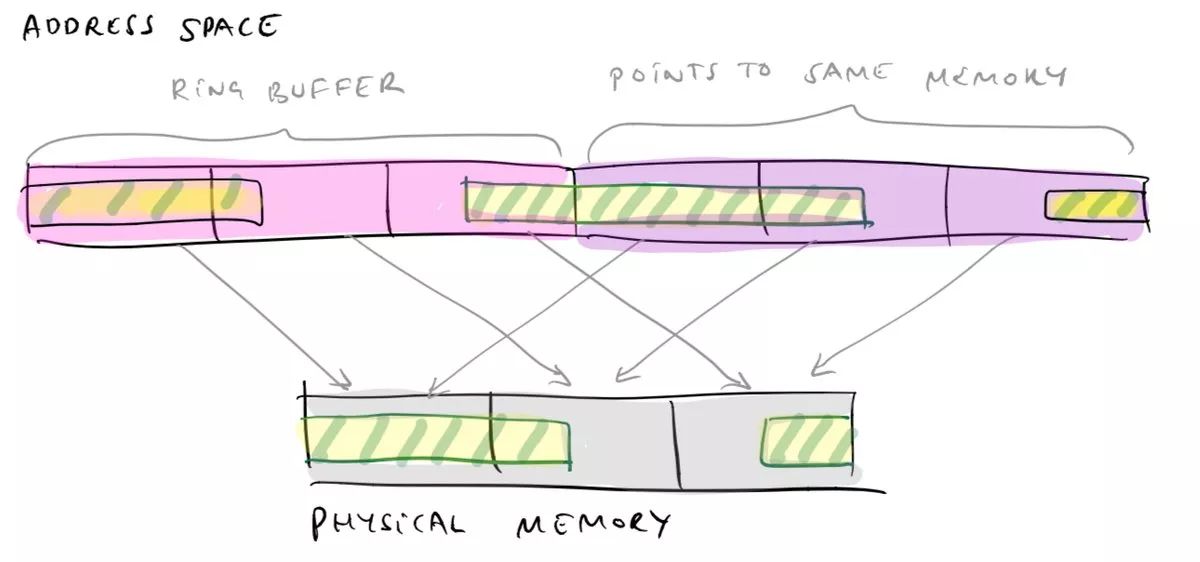 ADDRESS SPACE
RING BUFFER
POINTS TO SAME MEMORY
PHYSICAL MEMORY